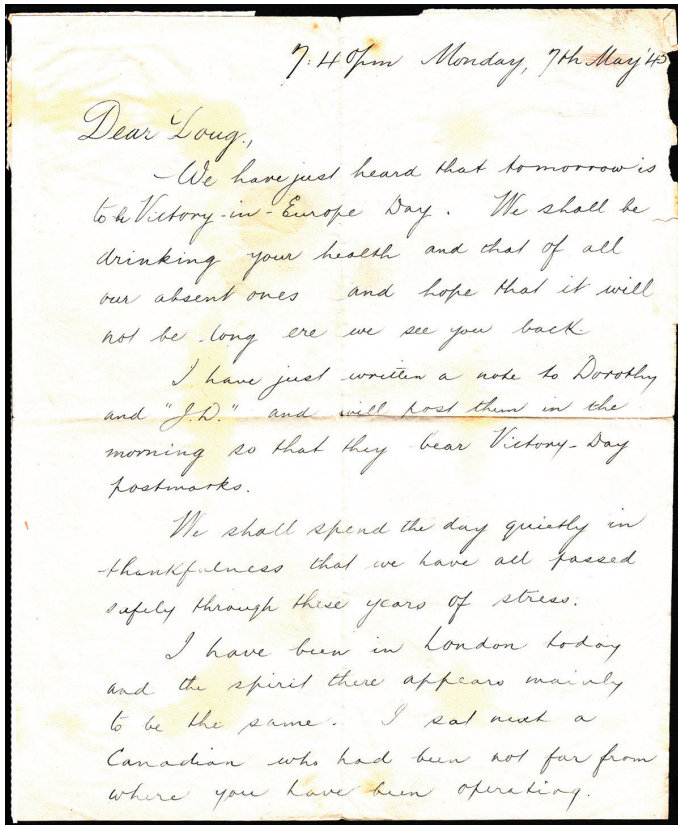 7:40pm Monday, 7th May '45
Dear Doug.,
- We have just heard that tomorrow is
to be Victory-in-Europe Day. We shall be
drinking your health and that of all
our absent ones and hope that it will
not be long ere we see you back.
I have just written a note to Dorothy
and "J.D." and will post them in the
morning so that they bear Victory-Day
postmarks.
We shall spend the day quietly in
thankfulness that we have all passed
safely through these years of stress.
I have been in London today
and the spirit there appears mainly
to be the same. I sat next a
Canadian who had been not far from
where you have been operating.